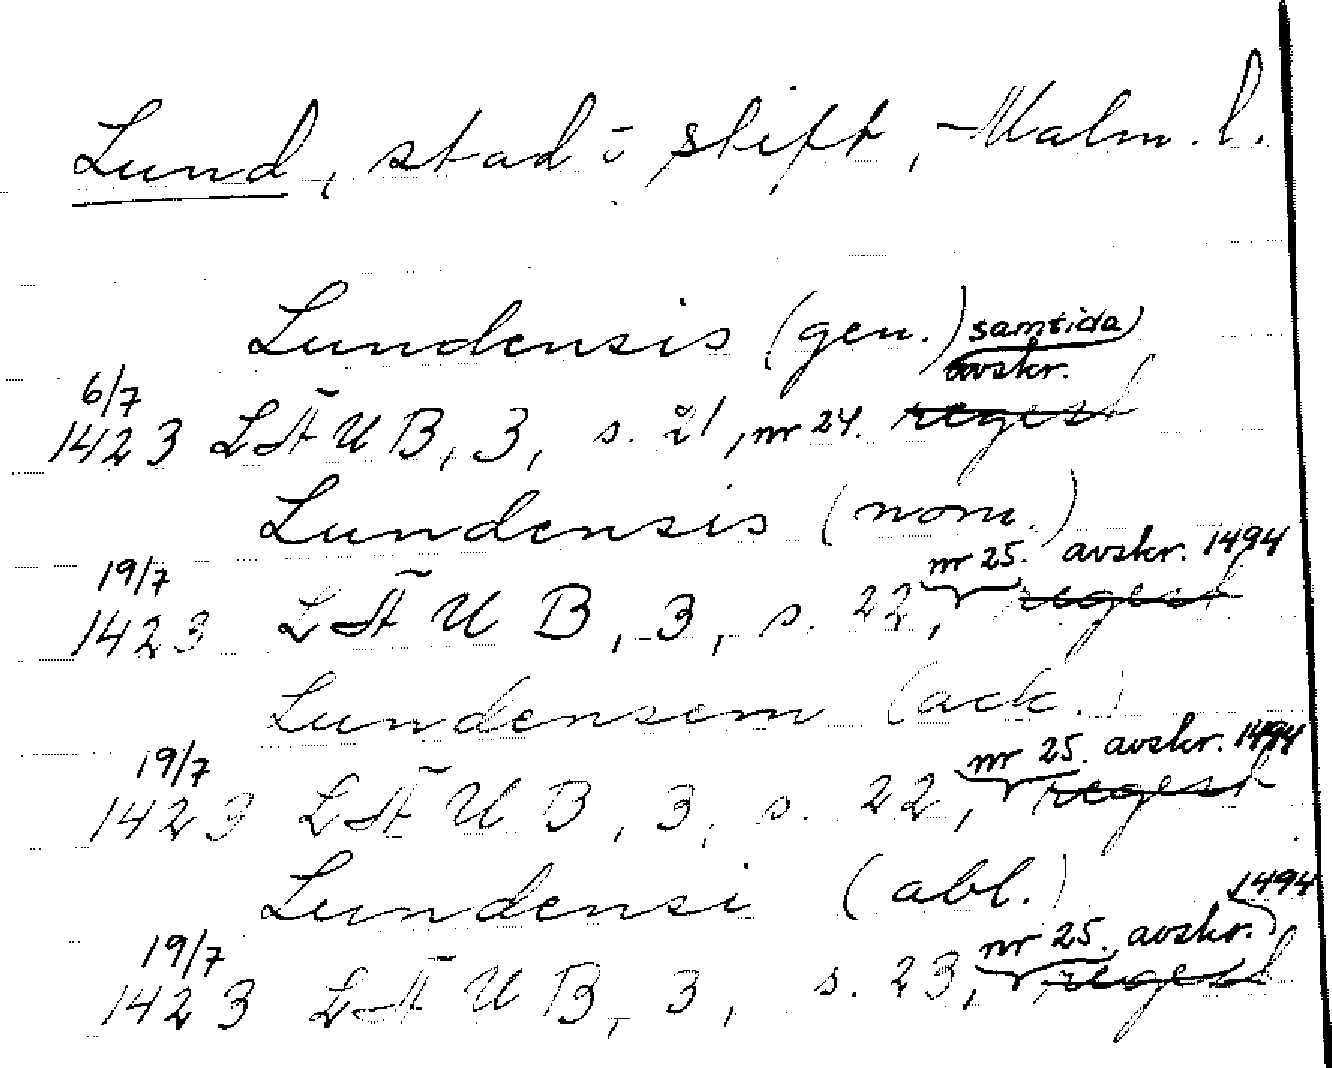 Lund, stad o stift, Malm. l.
Lundensis (gen.) samtida
avskr.
6/7
1423 LÄUB, 3, s. 21, nr 24. regest
Lundensis (nom.)
nr 25. avskr. 1494
19/7
1423 LÄUB, 3, s. 22, regest
Lundensem (ack.)
nr 25. avskr. 1494
19/7
1423 LÄUB, 3, s. 22, regest
Lundensi (abl.)
1494
nr 25. avskr.
19/7
1423 LÄUB, 3, s. 23, regest